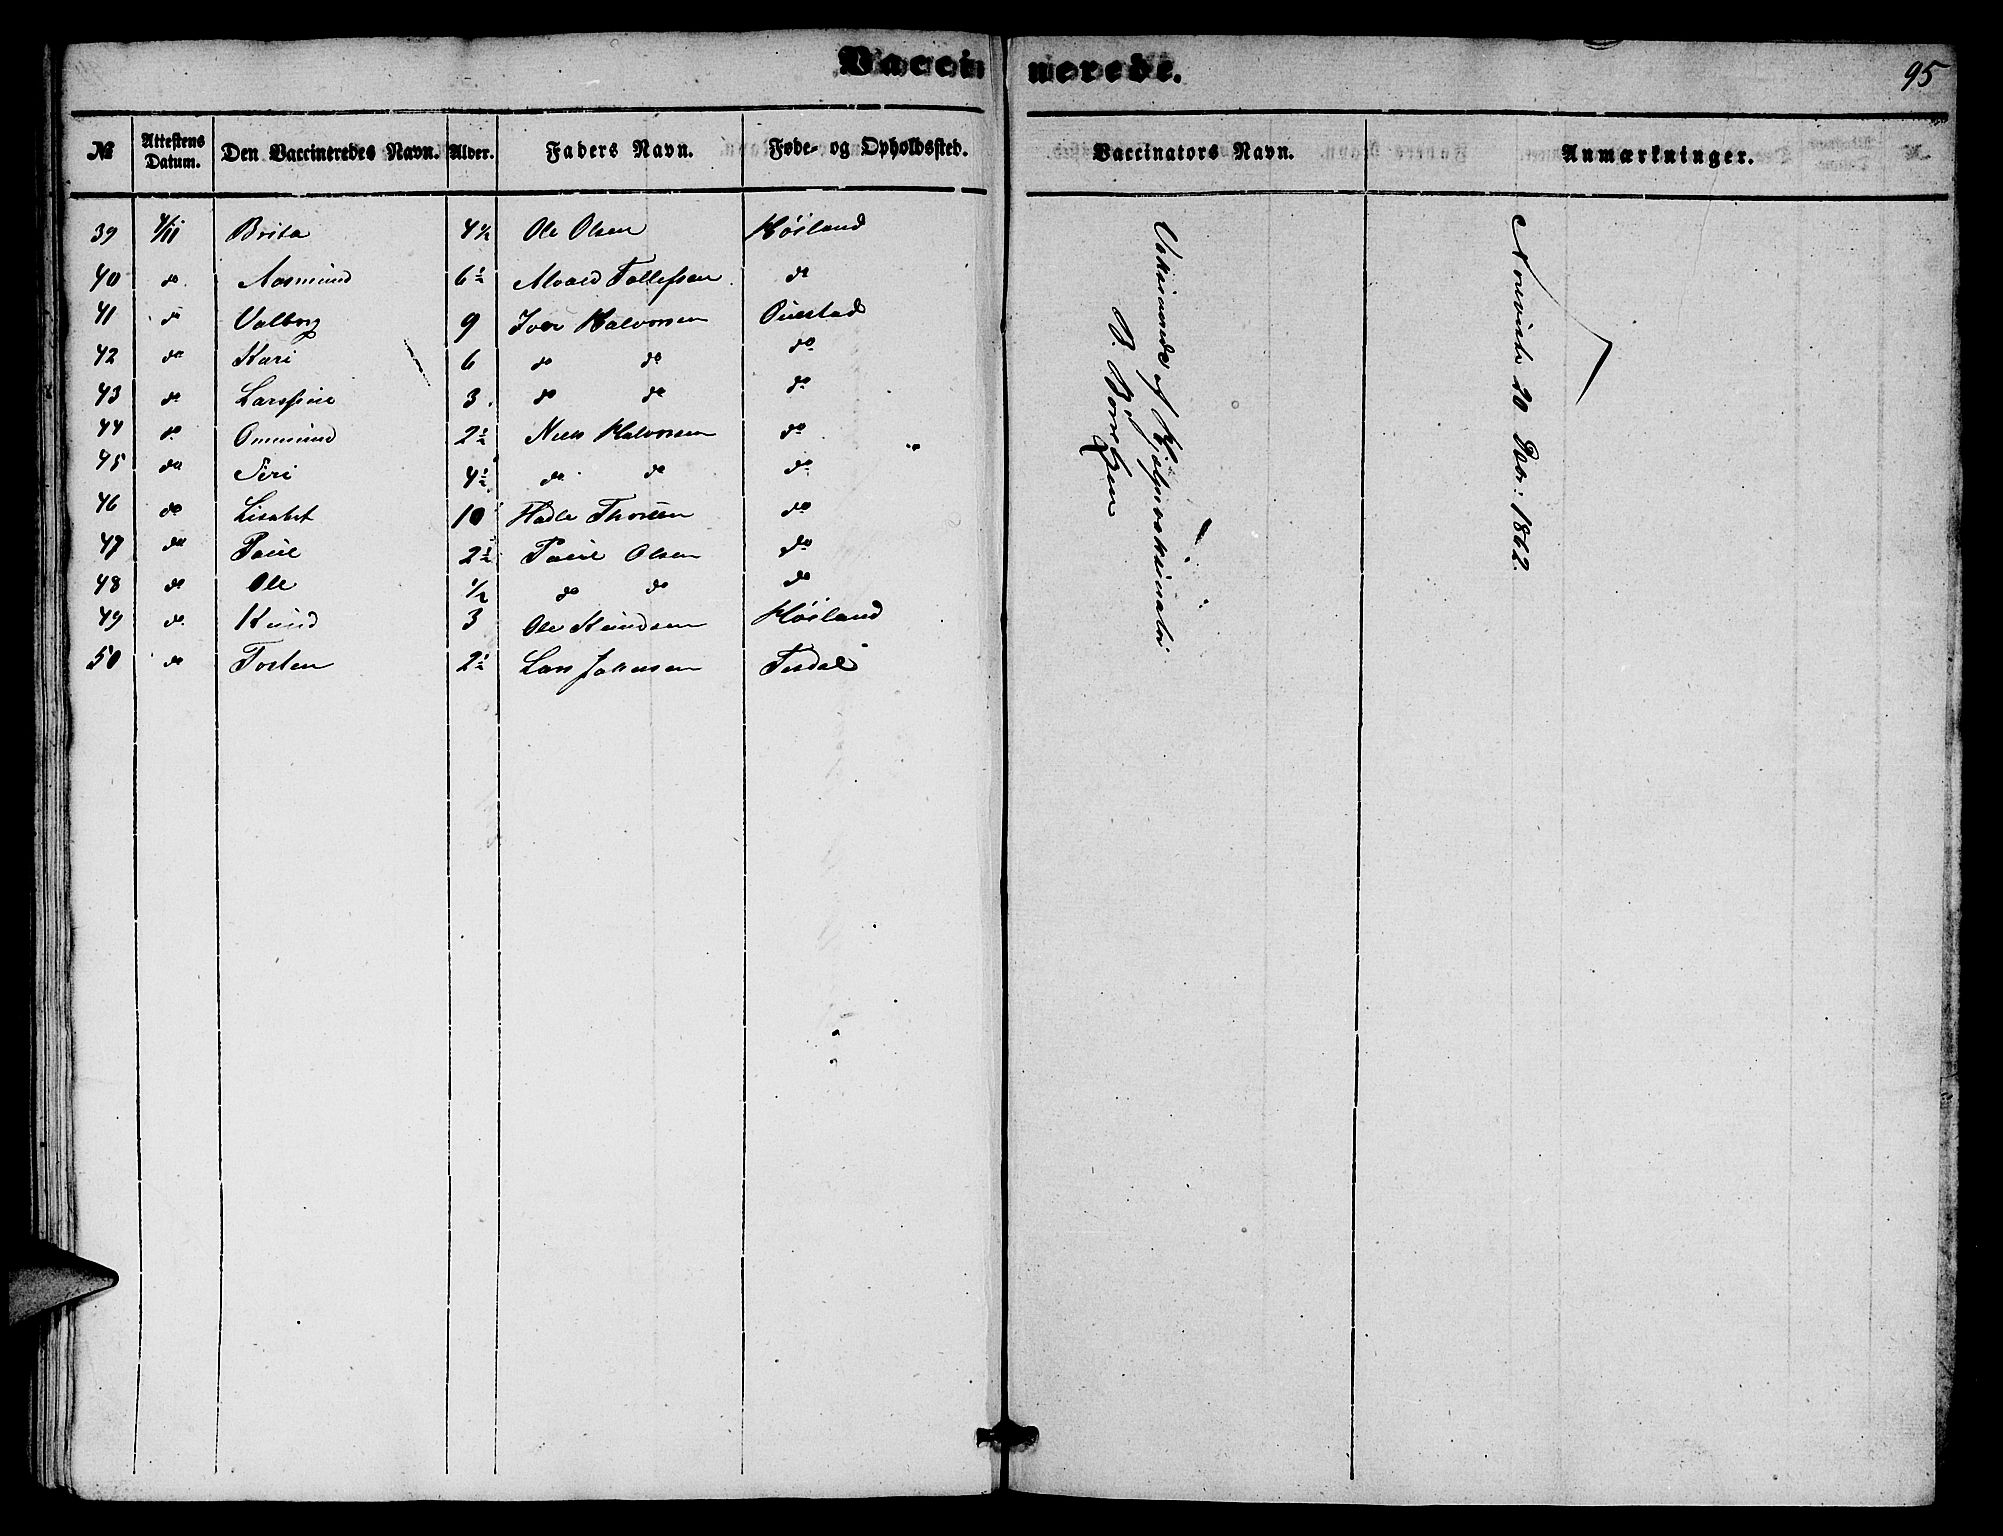 Vaccinerede.
95
№ Attestens Datum. Den Vaccineredes Navn. Alder. Faders Navn. Føde- og Opholdssted. Vaccinators Navn. Anmærkninger.
39 4/11 Brita 4½ Ole Olsen Høiland
40 do Aasmund 6½ Alvald Tollefsen do
41 do Valborg 9 Iver Halvorsen Questad
42 do Kari 6 do do do
43 do 3 do do do
44 do Ommund 2½ Niels Halvorsen do
45 do Siri 4½ do do do
46 do Lisabet 10 Hadle do
47 do Paul 2½ Paul Olsen do
48 do Ole ½ do do do
49 do Knud 3 Ole Knudsen Høiland
50 do Torsten 2½ Lars Johnsen Tisdal
Vaksinerede af Hjælpevaksinatør
B. Borsheim
20 Debr: 1862.